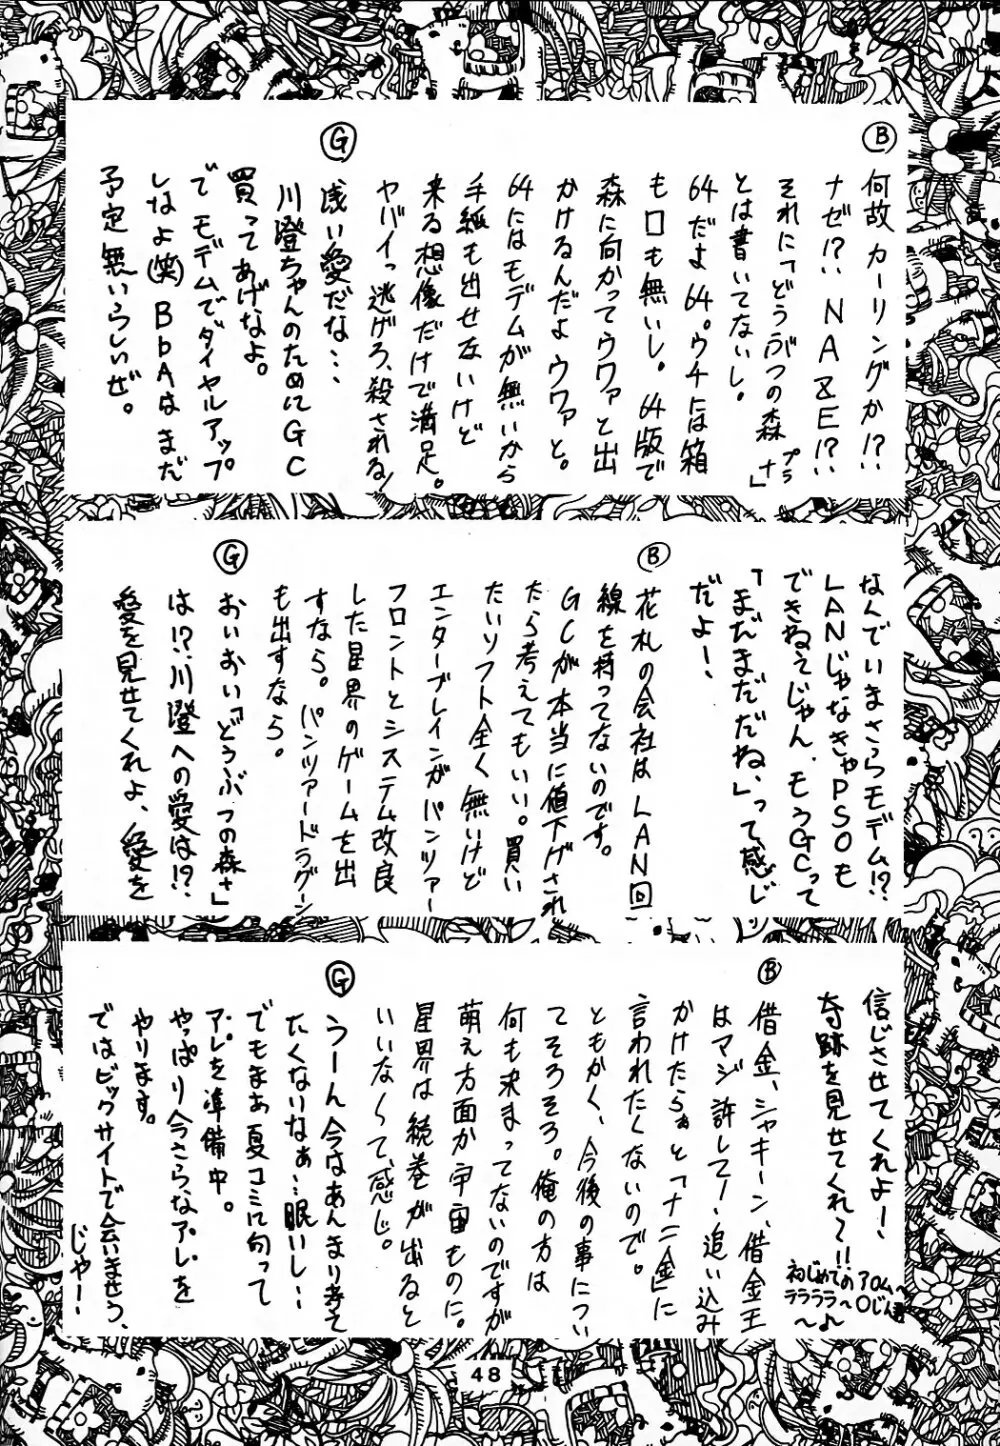 Ⓑ
何故カーリングか!?
ナゼ!? NAZE!?
それに「どうぶつの森プラナ」
とは書いてないし。
64だよ64。ウチには箱
も口も無いし。64版で
森に向かってウワァと出
かけるんだよウワァと。
64にはモデムが無いから
手紙も出せないけど
来る想像だけで満足。
ヤバイっ逃げろ、殺される!
Ⓖ
浅い愛だな…
川澄ちゃんのためにGC
買ってあげなよ。
で モデムでダイヤルアップ
しなよ(笑) BbAはまだ
予定無いらしいぜ。
なんでいまさらモデム!?
LANじゃなきゃPSOも
できねえじゃん。もうGCって
「まだまだだね」って感じ
だよー!
Ⓑ
花札の会社はLAN回
線を持ってないのです。
GCが本当に値下げされ
たら考えてもいい。買い
たいソフト全く無いけど
エンターブレインがパンツァー
フロントとシステム改良
した星界のゲームを出
すなら。パンツァードラグーン
も出すなら。
Ⓖ
おいおい「どうぶつの森+」
は!? 川澄への愛は!?
愛を見せてくれよ、愛を
信じさせてくれよー、
奇跡を見せてくれ〜!!
初じめてのアロム〜
ラララララ〜♪
Ⓑ
借金、シャキーン、借金王
はマジ許してー!追い込み
かけたらぁと「ナニ金」に
言われたくないので。
ともかく、今後の事につい
てそろそろ。俺の方は
何も決まってないのですが
萌え方面か宇宙ものに。
星界は続巻が出ると
いいなーって、感じ。
Ⓖ
うーん今はあんまり考え
たくないなぁ…眠いし…
でもまぁ夏コミに向って
アレを準備中。
やっぱり今さらなアレを
やります。
ではビックサイトで会いませう、
じゃー!
48